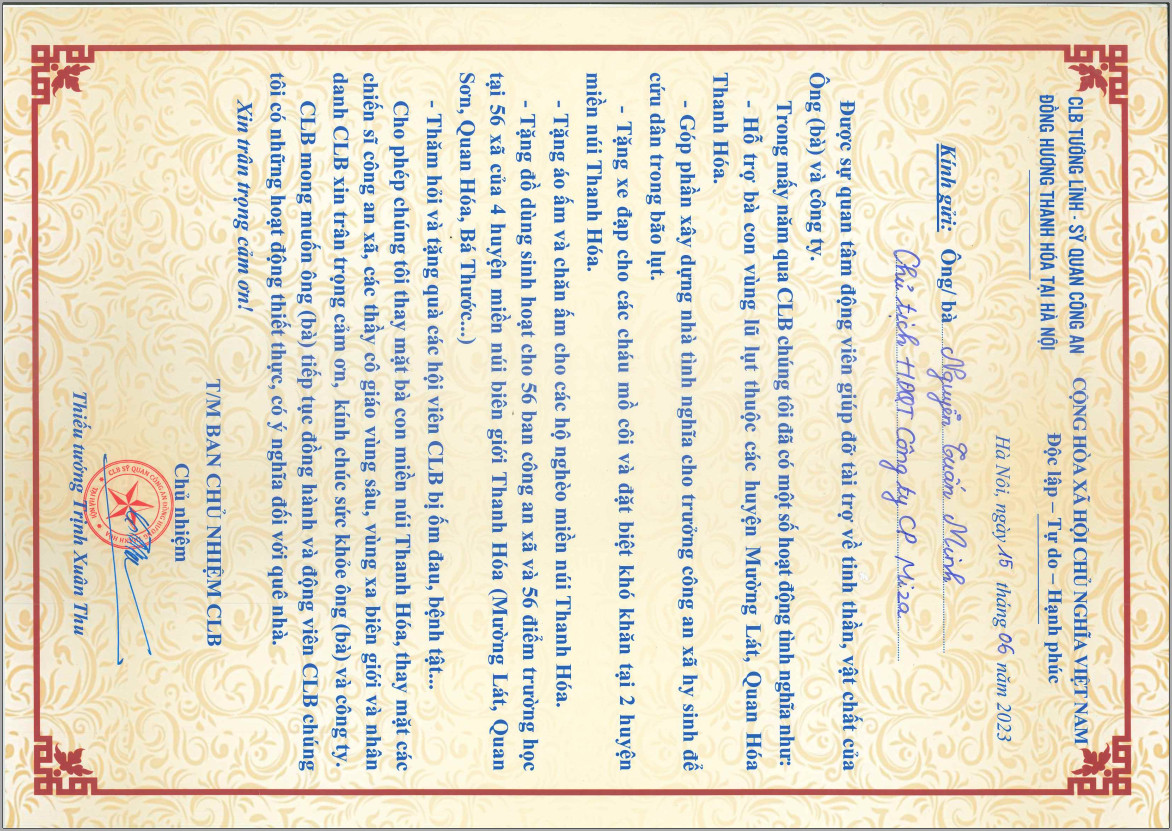 CLB TƯỚNG LĨNH - SỸ QUAN CÔNG AN
ĐỒNG HƯƠNG THANH HÓA TẠI HÀ NỘI
CỘNG HÒA XÃ HỘI CHỦ NGHĨA VIỆT NAM
Độc lập – Tự do – Hạnh phúc
Hà Nội, ngày 15 tháng 06 năm 2023
Kính gửi: Ông/ bà Nguyễn Tuấn Minh
Chủ tịch HĐQT Công ty CP Miza
Được sự quan tâm động viên giúp đỡ tài trợ về tinh thần, vật chất của
Ông (bà) và công ty.
Trong mấy năm qua CLB chúng tôi đã có một số hoạt động tình nghĩa như:
- Hỗ trợ bà con vùng lũ lụt thuộc các huyện Mường Lát, Quan Hóa
Thanh Hóa.
- Góp phần xây dựng nhà tình nghĩa cho trưởng công an xã hy sinh để
cứu dân trong bão lụt.
- Tặng xe đạp cho các cháu mồ côi và đặt biệt khó khăn tại 2 huyện
miền núi Thanh Hóa.
- Tặng áo ấm và chăn ấm cho các hộ nghèo miền núi Thanh Hóa.
- Tặng đồ dùng sinh hoạt cho 56 ban công an xã và 56 điểm trường học
tại 56 xã của 4 huyện miền núi biên giới Thanh Hóa (Mường Lát, Quan
Sơn, Quan Hóa, Bá Thước...)
- Thăm hỏi và tặng quà các hội viên CLB bị ốm đau, bệnh tật...
Cho phép chúng tôi thay mặt bà con miền núi Thanh Hóa, thay mặt các
chiến sĩ công an xã, các thầy cô giáo vùng sâu, vùng xa biên giới và nhân
danh CLB xin trân trọng cảm ơn, kính chúc sức khỏe ông (bà) và công ty.
CLB mong muốn ông (bà) tiếp tục đồng hành và động viên CLB chúng
tôi có những hoạt động thiết thực, có ý nghĩa đối với quê nhà.
Xin trân trọng cảm ơn!
T/M BAN CHỦ NHIỆM CLB
Chủ nhiệm
CLB SỸ QUAN CÔNG AN ĐỒNG HƯƠNG THANH HÓA
TẠI HÀ NỘI
Thiếu tướng Trịnh Xuân Thu